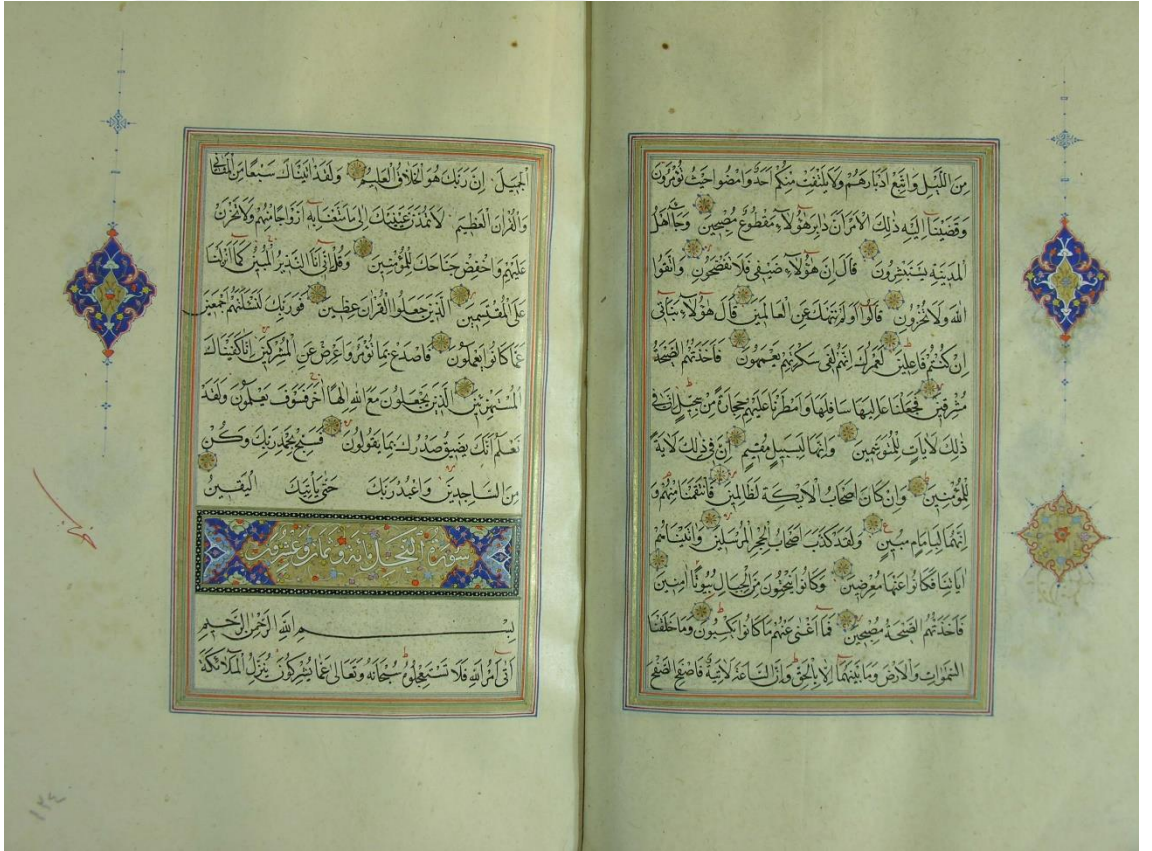 مِنَ اللَّيْلِ وَاتَّبِعْ اَدْبَارَهُمْ وَلَا يَلْتَفِتْ مِنْكُمْ اَحَدٌ وَامْضُوا حَيْثُ تُؤْمَرُونَ
وَقَضَيْنَا اِلَيْهِ ذٰلِكَ الْاَمْرَ اَنَّ دَابِرَ هٰؤُلَاءِ مَقْطُوعٌ مُصْبِحِينَ وَجَاءَ اَهْلُ
الْمَدِينَةِ يَسْتَبْشِرُونَ قَالَ اِنَّ هٰؤُلَاءِ ضَيْفِي فَلَا تَفْضَحُونِ وَاتَّقُوا
اللّٰهَ وَلَا تُخْزُونِ قَالُوا اَوَلَمْ نَنْهَكَ عَنِ الْعَالَمِينَ قَالَ هٰؤُلَاءِ بَنَاتِي
اِنْ كُنْتُمْ فَاعِلِينَ لَعَمْرُكَ اِنَّهُمْ لَفِي سَكْرَتِهِمْ يَعْمَهُونَ فَاَخَذَتْهُمُ الصَّيْحَةُ
مُشْرِقِينَ فَجَعَلْنَا عَالِيَهَا سَافِلَهَا وَاَمْطَرْنَا عَلَيْهِمْ حِجَارَةً مِنْ سِجِّيلٍ اِنَّ فِي
ذٰلِكَ لَاٰيَاتٍ لِلْمُتَوَسِّمِينَ وَاِنَّهَا لَبِسَبِيلٍ مُقِيمٍ اِنَّ فِي ذٰلِكَ لَاٰيَةً
لِلْمُؤْمِنِينَ وَاِنْ كَانَ اَصْحَابُ الْاَيْكَةِ لَظَالِمِينَ فَانْتَقَمْنَا مِنْهُمْ وَ
اِنَّهُمَا لَبِاِمَامٍ مُبِينٍ وَلَقَدْ كَذَّبَ اَصْحَابُ الْحِجْرِ الْمُرْسَلِينَ وَاٰتَيْنَاهُمْ
اٰيَاتِنَا فَكَانُوا عَنْهَا مُعْرِضِينَ وَكَانُوا يَنْحِتُونَ مِنَ الْجِبَالِ بُيُوتًا اٰمِنِينَ
فَاَخَذَتْهُمُ الصَّيْحَةُ مُصْبِحِينَ فَمَا اَغْنٰى عَنْهُمْ مَا كَانُوا يَكْسِبُونَ وَمَا خَلَقْنَا
السَّمٰوَاتِ وَالْاَرْضَ وَمَا بَيْنَهُمَا اِلَّا بِالْحَقِّ وَاِنَّ السَّاعَةَ لَاٰتِيَةٌ فَاصْفَحِ الصَّفْحَ
الْجَمِيلَ اِنَّ رَبَّكَ هُوَ الْخَلَّاقُ الْعَلِيمُ وَلَقَدْ اٰتَيْنَاكَ سَبْعًا مِنَ الْمَثَانِي
وَالْقُرْاٰنَ الْعَظِيمَ لَا تَمُدَّنَّ عَيْنَيْكَ اِلٰى مَا مَتَّعْنَا بِهِ اَزْوَاجًا مِنْهُمْ وَلَا تَحْزَنْ
عَلَيْهِمْ وَاخْفِضْ جَنَاحَكَ لِلْمُؤْمِنِينَ وَقُلْ اِنِّي اَنَا النَّذِيرُ الْمُبِينُ كَمَا اَنْزَلْنَا
عَلَى الْمُقْتَسِمِينَ الَّذِينَ جَعَلُوا الْقُرْاٰنَ عِضِينَ فَوَرَبِّكَ لَنَسْـَٔلَنَّهُمْ اَجْمَعِينَ
عَمَّا كَانُوا يَعْمَلُونَ فَاصْدَعْ بِمَا تُؤْمَرُ وَاَعْرِضْ عَنِ الْمُشْرِكِينَ اِنَّا كَفَيْنَاكَ
الْمُسْتَهْزِئِينَ الَّذِينَ يَجْعَلُونَ مَعَ اللّٰهِ اِلٰهًا اٰخَرَ فَسَوْفَ يَعْلَمُونَ وَلَقَدْ
نَعْلَمُ اَنَّكَ يَضِيقُ صَدْرُكَ بِمَا يَقُولُونَ فَسَبِّحْ بِحَمْدِ رَبِّكَ وَكُنْ
مِنَ السَّاجِدِينَ وَاعْبُدْ رَبَّكَ حَتّٰى يَأْتِيَكَ الْيَقِينُ
سورة النحل مائة وثمان وعشرون
بِسْمِ اللّٰهِ الرَّحْمٰنِ الرَّحِيمِ
اَتٰى اَمْرُ اللّٰهِ فَلَا تَسْتَعْجِلُوهُ سُبْحَانَهُ وَتَعَالٰى عَمَّا يُشْرِكُونَ يُنَزِّلُ الْمَلَائِكَةَ
١٣٤